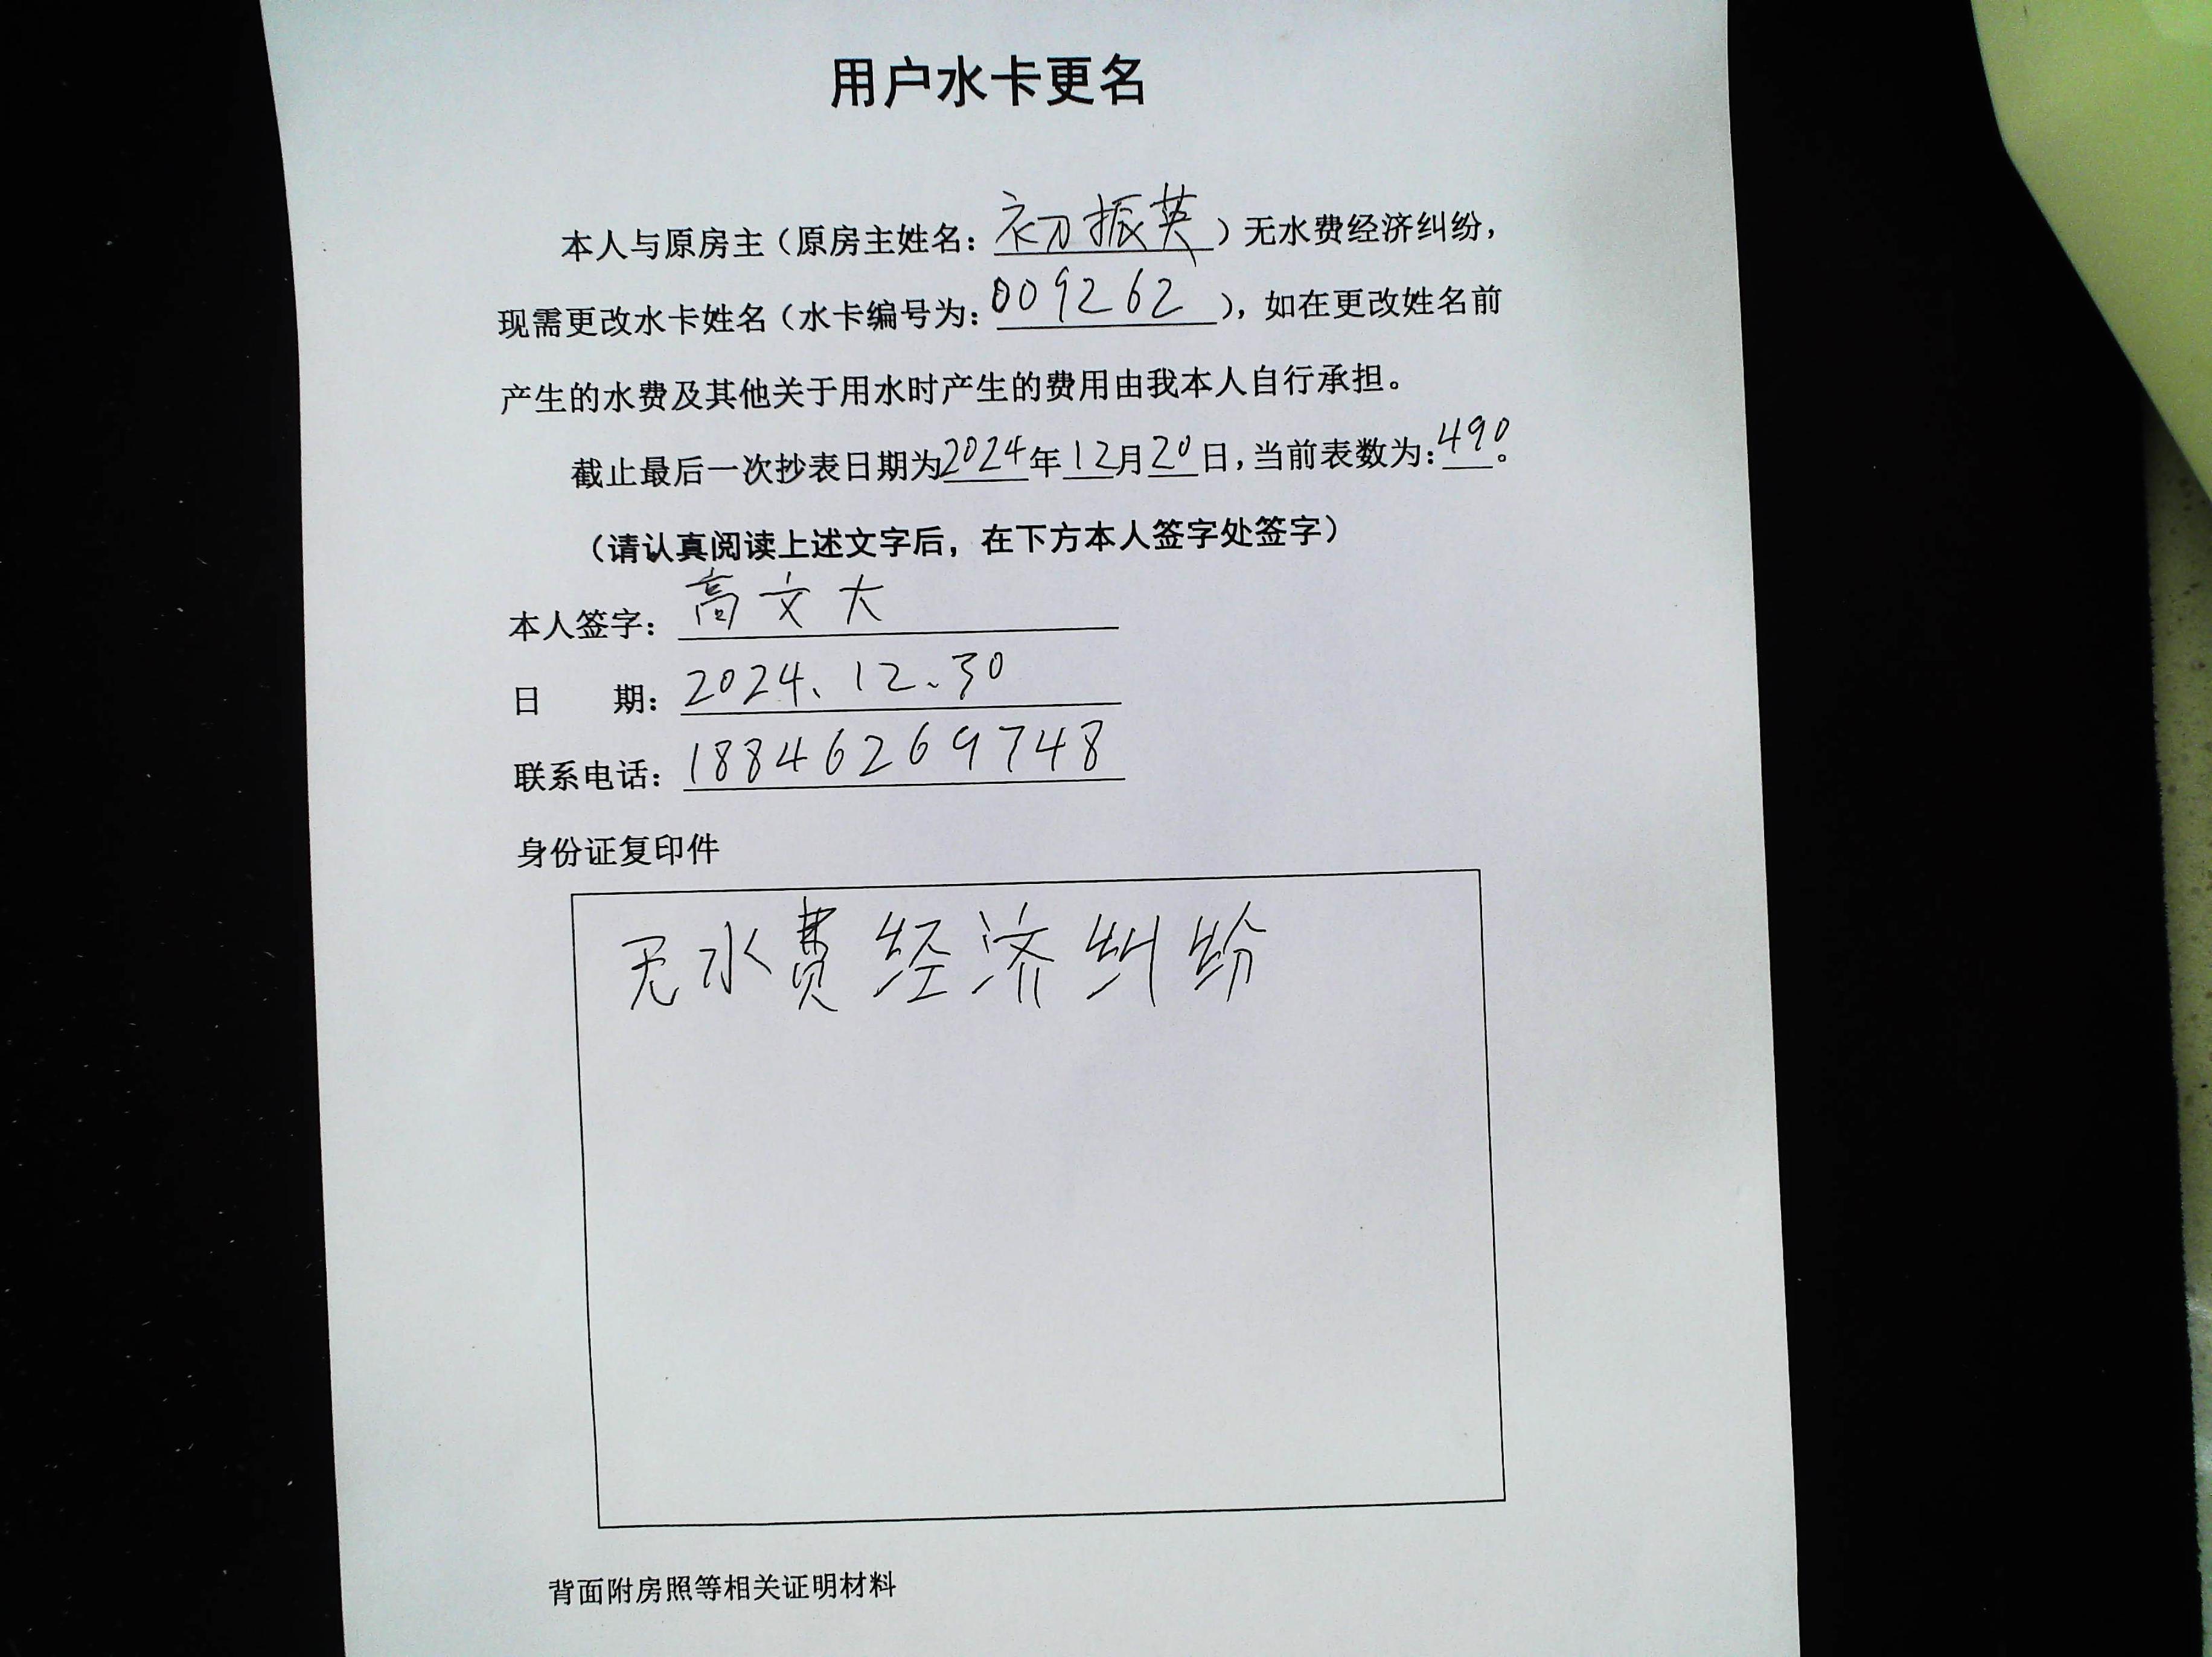 用户水卡更名
本人与原房主（原房主姓名：初振英）无水费经济纠纷，
现需更改水卡姓名（水卡编号为：009262），如在更改姓名前
产生的水费及其他关于用水时产生的费用由我本人自行承担。
截止最后一次抄表日期为2024年12月20日，当前表数为：490。
（请认真阅读上述文字后，在下方本人签字处签字）
本人签字：高文大
日　　期：2024、12、30
联系电话：18846269748
身份证复印件
无水费经济纠纷
背面附房照等相关证明材料